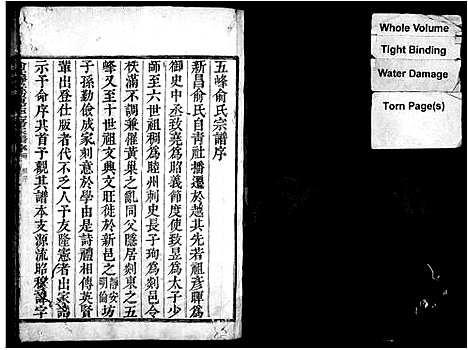 五峰俞氏宗譜序
新昌俞氏自青社播遷於越其先若祖彥暉為
御史中丞致堯為昭義節度使致昱為太子少
師至六世祖稠為睦州刺史長子珣為剡邑令
秩滿不調兼催黃巢之亂同父隱居剡東之五
峰又至十世祖文興文旺於新邑之靜安坊明倫
子孫勤儉成家刻意於學由是詩禮相傳英賢
輩出登仕版者代不乏人予友隆憲者出家譜
示予命序其首予觀其譜本支源流昭穆諱字
Whole Volume
Tight Binding
Water Damage
Torn Page(s)